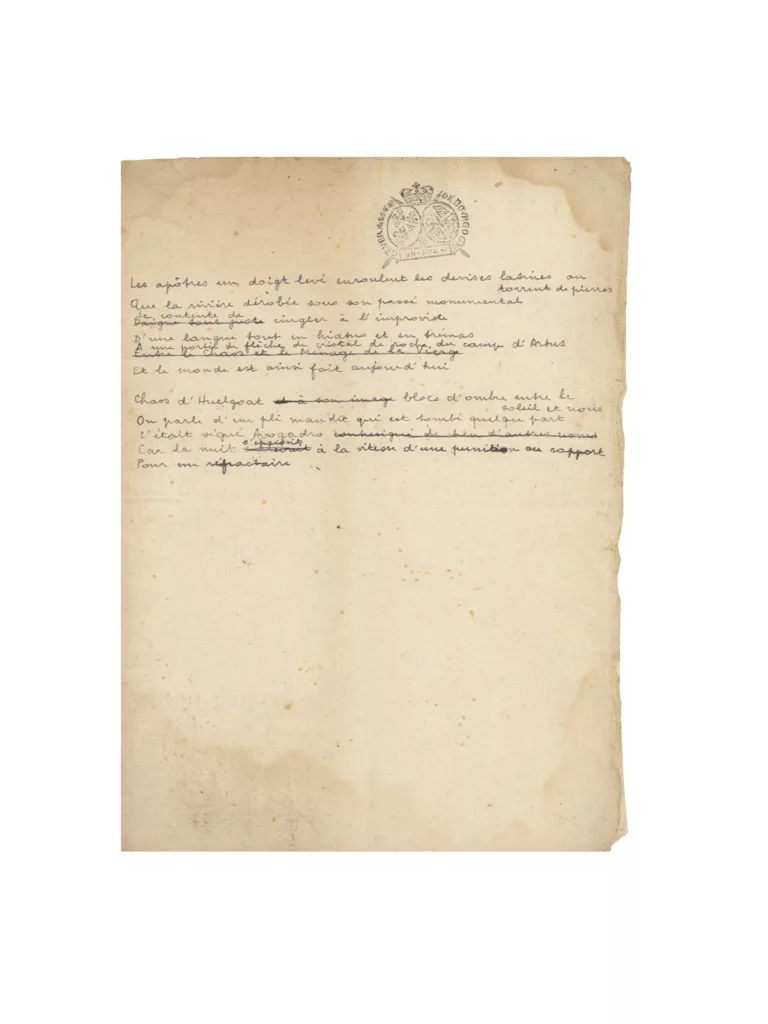 Les apôtres un doigt levé enroulent les devises latines au
torrent de pierres
Que la rivière dérobée sous son passé monumental
Se contente de
Daigne tout juste cingler à l'improviste
D'une langue tout en hiatus et en trémas
A une portée de flèche de cristal de roche du camp d'Artus
Entre le Chaos et le Ménage de la Vierge
Et le monde est ainsi fait aujourd'hui
Chaos d'Huelgoat et à son image blocs d'ombre entre le
soleil et nous
On parle d'un pli maudit qui est tombé quelque part
C'était signé Avogadro contresigné de bien d'autres noms
Car la nuit à la vitesse d'une punition au rapport
Pour un réfractaire